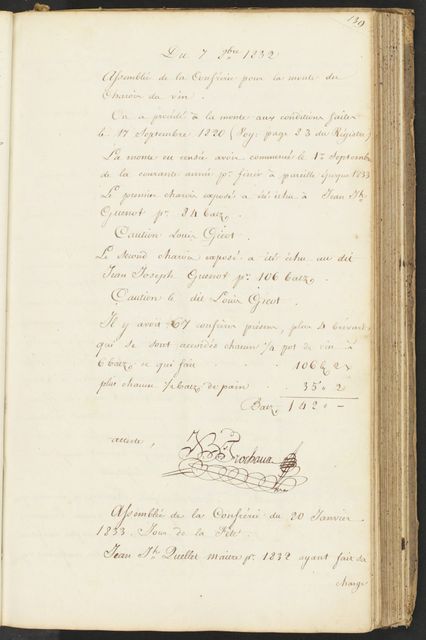 130
Du 7 9bre 1832
Assemblée de la Confrérie pour la monte du
Charoix du vin.
On a procédé à la monte aux conditions faites
le 17 Septembre 1820 (Voy: page 23 du Régistre)
La monte est censée avoir commencé le 1er Septembre
de la courante année pr finir à pareille époque 1833
Le premier charoix exposé a été échu à Jean Jh
Guenot pr 84 batz.
Caution Louis Gicot.
Le Second charoix exposé a été échu au dit
Jean Joseph Guenot pr 106 batz.
Caution le dit Louis Gicot.
Il y avoit 67 confrères présens, plus 4
qui se sont accordés chacun 1/4 pot de vin à
6 batz, ce qui fait 106 2
plus chacun 1/2 batz de pain 35 " 2
Batz. 142 " -
atteste,
Frochaux
Assemblée de la Confrérie du 20 Janvier
1833. Jour de la Fête.
Jean Jh Quellet maitre pr 1832 ayant fait sa
charge